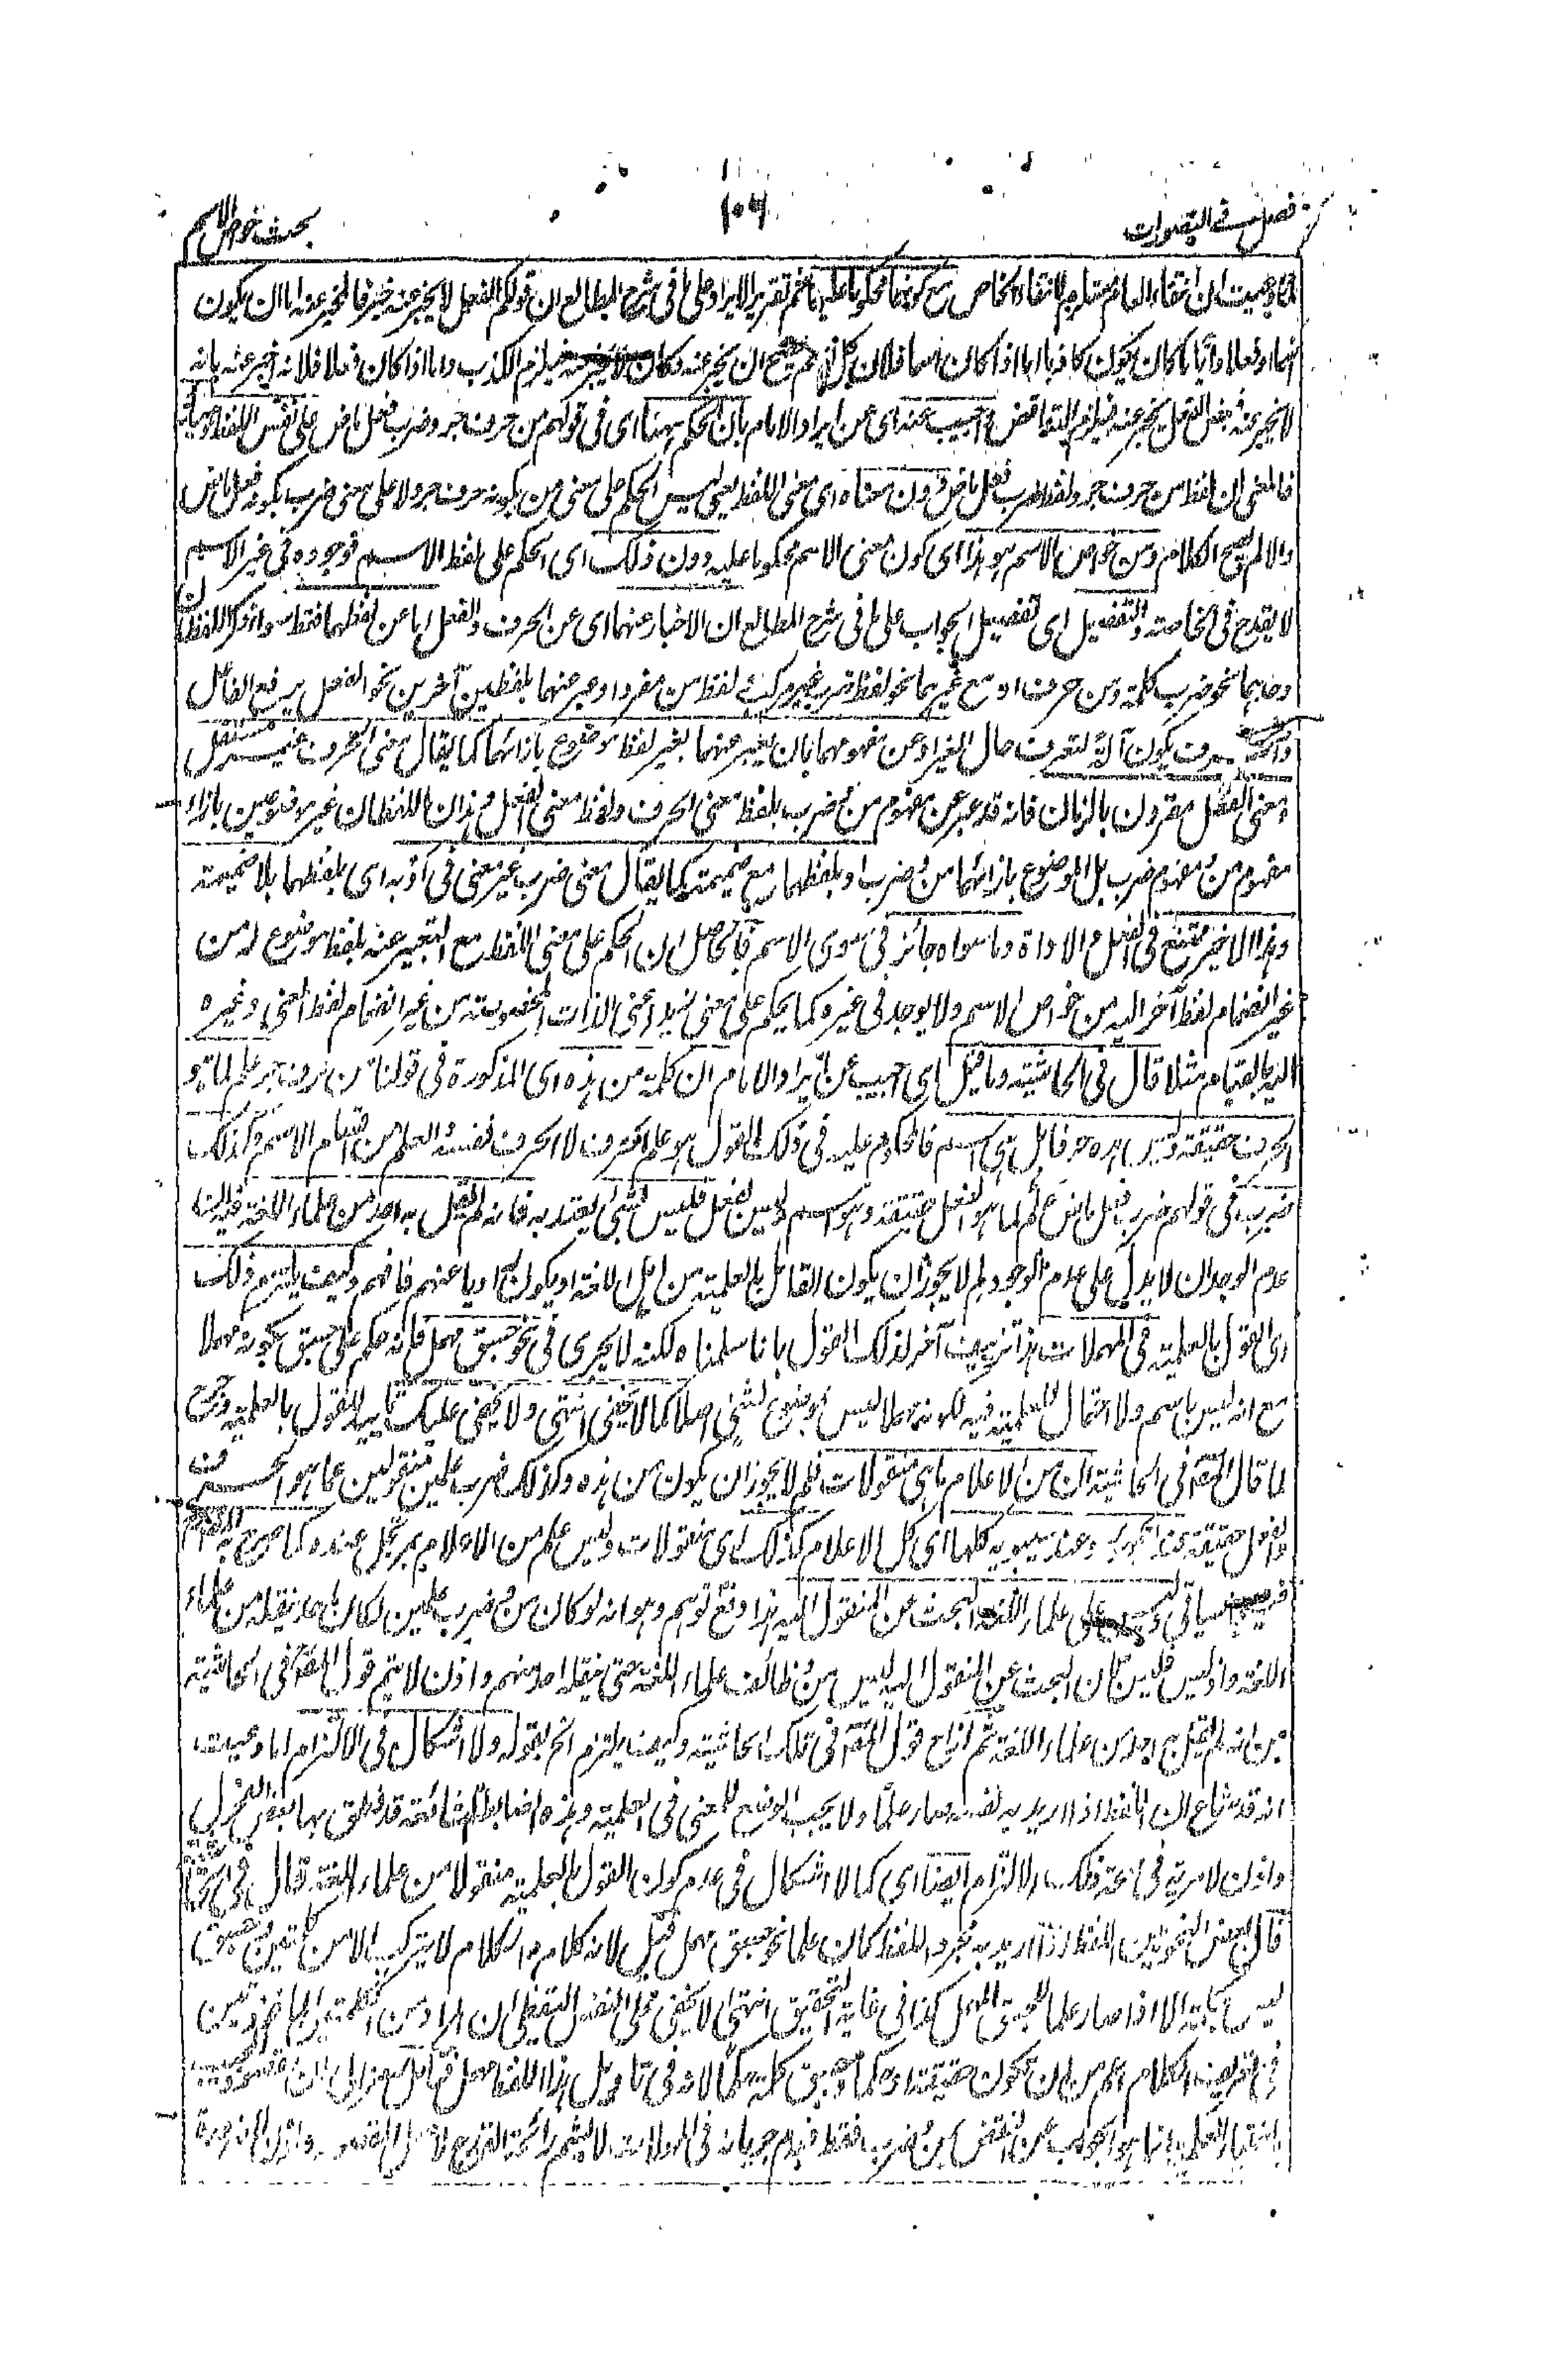 فصل في التصورات
١٠٦
بحث خواص الاسم
ان انتفاء العام مستلزم لانتفاء الخاص مع كونهما محكوما عليهما ثم تقرير الايراد على ما في شرح المطالع ان قولكم الفعل لا يخبر عنه خبر فالمخبر عنه اما ان يكون
اسما او فعلا وايا ما كان يكون كاذبا اما اذا كان اسما فلان كل اسم يصح ان يخبر عنه فيلزم الكذب واما اذا كان فعلا فلانه اخبر عنه بانه
لا يخبر عنه فبعض الفعل يخبر عنه فيلزم التناقض واجيب عنه اى عن ايراد الامام بان الحكم ههنا اى فى قولهم من حرف جر وضرب فعل ماض على نفس اللفظ
فالمعنى ان لفظ من حرف جر ولفظ ضرب فعل ماض دون معناه اى معنى اللفظ يعنى ليس الحكم على معنى من بكونه حرف جر ولا على معنى ضرب بكونه فعل ماض
والا لم يصح الكلام ومن خواص الاسم هو هذا اى كون معنى الاسم محكوما عليه دون ذلك اى الحكم على لفظ الاسم فوجوده فى غير الاسم
لا يقدح فى الخاصة والتفصيل اى تفصيل الجواب على ما فى شرح المطالع ان الاخبار عنهما اى عن الحرف والفعل اما عن لفظهما فقط سواء ذكر اللفظان
وحدهما نحو ضرب كلمة ومن حرف او مع غيرهما نحو لفظ ضرب غير مركب لفظ من مفرد او عبر عنهما بلفظين آخرين نحو الفعل يرفع الفاعل
والحرف يكون آلة لتعرف حال الغير او عن مفهومهما بان يعبر عنهما بغير لفظ موضوع بازائهما كما يقال معنى الحرف غير مستقل
ومعنى الفعل مقرون بالزمان فانه قد عبر عن مفهوم من وضرب بلفظ معنى الحرف ولفظ معنى الفعل وهذان اللفظان غير موضوعين بازاء
مفهوم من ومفهوم ضرب بل الموضوع بازائهما من وضرب او بلفظهما مع ضميمة كما يقال معنى ضرب غير معنى فى او به اى بلفظهما بلا ضميمة
وهذا الاخير ممتنع فى الفعل والاداة وما سواه جائز فى سوى الاسم فالحاصل ان الحكم على معنى اللفظ مع التعبير عنه بلفظ موضوع له من
غير انضمام لفظ آخر اليه من خواص الاسم ولا يوجد فى غيره كما يحكم على معنى زيد اعنى الذات المخصوصة من غير انضمام لفظ المعنى وغيره
اليه بالقيام مثلا قال فى الحاشية وما قيل اى اجيب عن ايراد الامام ان كلمة من هذه اى المذكورة فى قولنا من حرف جر علم لما هو
الحرف حقيقة اسم فالمحكوم عليه فى ذلك القول هو علم الحرف لا الحرف نفسه والعلم من اقسام الاسم وكذلك
ضرب فى قولهم ضرب فعل ماض علم لما هو الفعل حقيقة وهو اسم وليس بفعل فليس بشئ يعتد به فانه لم يقل به احد من علماء اللغة
عدم الوجدان لا يدل على عدم الوجود ولم لا يجوز ان يكون القائل بالعلمية من اهل اللغة او يكون راويا عنهم فافهم وكيف يلتزم ذلك
اى القول بالعلمية فى المهملات هذا تزييف آخر لذلك القول بانا سلمناه لكنه لا يجرى فى نحو جسق مهمل فانه حكم على جسق بكونه مهملا
مع انه ليس باسم ولا احتمال للعلمية فيه لكونه مهملا ليس بموضوع لشئ اصلا كما لا يخفى انتهى ولا يخفى عليك تاييد للقول بالعلمية
لما قال المصنف فى الحاشية ان من الاعلام ما هى منقولات فلم لا يجوز ان يكون من هذه وكذلك ضرب علمين منقولين عما هو الحرف
والفعل حقيقة عند الجمهور وعند سيبويه كلها اى كل الاعلام كذلك اى منقولات وليس علم من الاعلام بمرتجل عنده كما صرح به
وليس على علماء اللغة البحث عن المنقول اليه هذا دفع توهم وهو انه لو كان من وضرب علمين لكان باحد ينقله من علماء
اللغة واذ ليس فليس لان البحث عن المنقول اليه ليس من وظائف علماء اللغة حتى ينقله احد منهم واذن لا يتم قول المصنف فى الحاشية
من انه لم يقل به احد من علماء اللغة ثم ازاح قول المصنف فى تلك الحاشية وكيف يلتزم الخ بقوله ولا اشكال فى الالتزام
انه قد شاع ان اللفظ اذا اريد به نفسه صار علما ولا يجب الوضع للمعنى فى العلمية وهذه الضابطة شائعة قد نطق بها
واذن لا مرية فى صحة ذلك الالتزام ايضا اى كما لا اشكال فى عدم كون القول بالعلمية منقولا من علماء اللغة قال فى
قال بعض النحويين اللفظ اذا اريد به مجرد اللفظ كان علما نحو جسق مهمل قيل لانه كلام والكلام لا يتركب الا من كلمتين وجسق
ليس بكلمة الا اذا صار علما لجسق المهمل كذا فى غاية التحقيق انتهى لا يخفى على ان المراد من الكلمتين
فى تعريف الكلام اعم من ان يكون حقيقة او حكما وجسق كلمة حكما لانه فى تاويل هذا اللفظ مهمل
عن النقض بمن وضرب فقط فعدم جريانه فى المهملات لا يشم رائحة